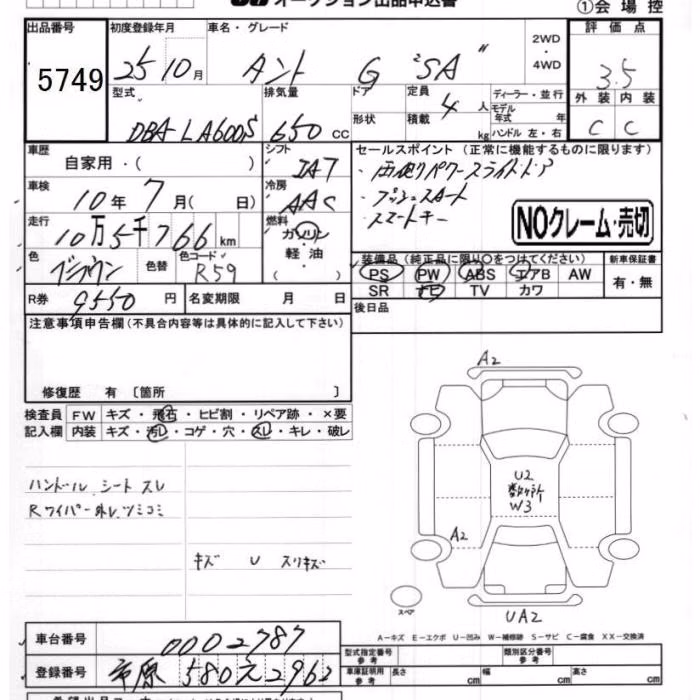 オークション出品申込書 ①会場控
出品番号 初度登録年月 車名・グレード 2WD・4WD 評価点
5749 25 10月 タント G "SA" 3.5
型式 排気量 ドア形状 定員 積載 4人 kg ディーラー・並行 モデル年式 年 ハンドル 左・右 外装 内装
DBA-LA600S 650cc C C
車歴 自家用・( ) シフト IAT セールスポイント (正常に機能するものに限ります)
車検 10年7月( 日) 冷房 AAC ・両側パワースライドドア
・プッシュスタート
・スマートキー
NOクレーム・売切
走行 10万5千766km 燃料 ガソリン 軽油
色 ブラウン 色替 色コード R59
装備品 (純正品に限り○をつけてください) 新車保証書
PS PW ABS エアB AW 有・無
SR ナビ TV カワ
R券 9550円 名変期限 月 日 後日品
注意事項申告欄(不具合内容等は具体的に記入して下さい)
修復歴 有 〔箇所 〕
検査員 FW キズ・飛石・ヒビ割・リペア跡・×要
記入欄 内装 キズ・汚レ・コゲ・穴・スレ・キレ・破レ
ハンドル シート スレ
Rワイパー外レツミコミ
キズ U スリキズ
A2
U2
数ヶ所
W3
A2
スペア
UA2
A-キズ E-エクボ U-凹み W-補修跡 S-サビ C-腐食 XX-交換済
車台番号 0002787
登録番号 市原 580え2962
型式指定番号 参考 類別区分番号 参考
車庫証明用 参考 長さ cm 幅 cm 高さ cm